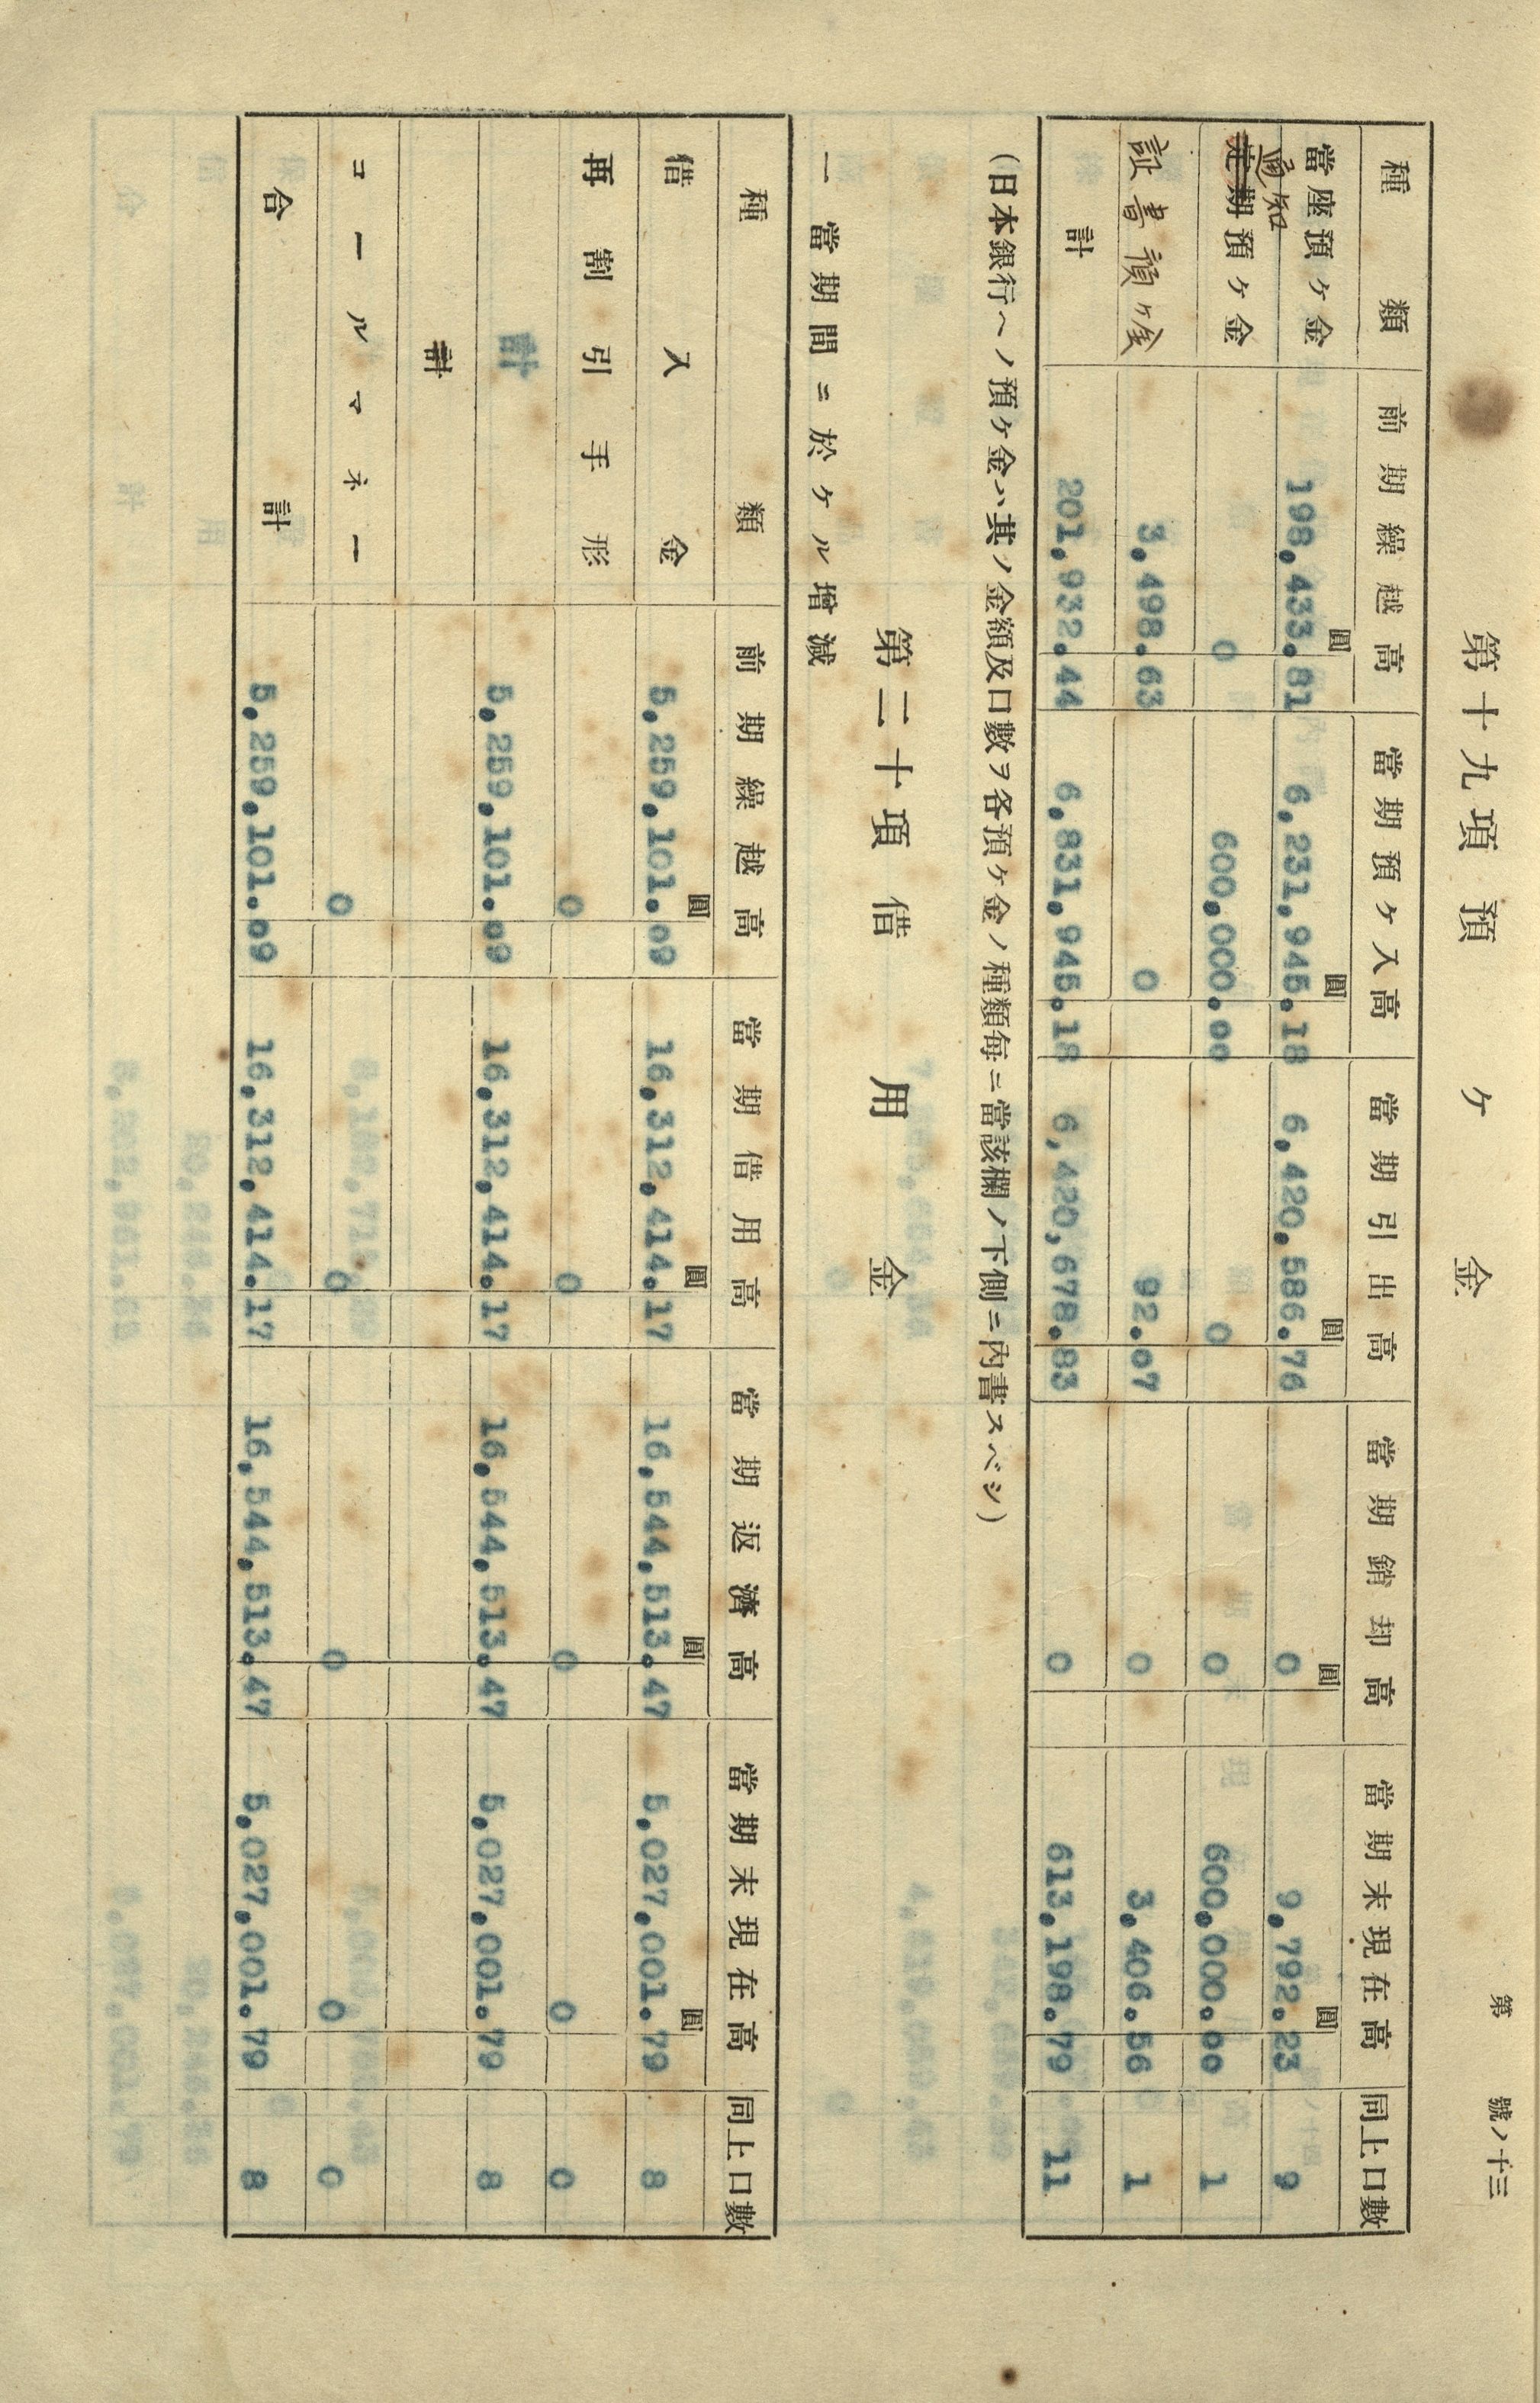 第 號ノ十三
第十九項 預ケ金
種類 前期繰越高 當期預ケ入高 當期引出高 當期銷却高 當期末現在高 同上口數
圓 圓 圓 圓 圓
當座預ケ金 198,433.81 6,231,945.18 6,420,586.76 0 9,792.23 9
通知
定期預ケ金 0 600,000.00 0 0 600,000.00 1
証書預ケ金 3,498.63 0 92.07 0 3,406.56 1
計 201,932.44 6,831,945.18 6,420,678.83 0 613,198.79 11
(日本銀行ヘノ預ケ金ハ其ノ金額及口數ヲ各預ケ金ノ種類每ニ當該欄ノ下側ニ內書スベシ)
第二十項 借用金
一 當期間ニ於ケル增減
種類 前期繰越高 當期借用高 當期返濟高 當期末現在高 同上口數
圓 圓 圓 圓
借入金 5,259,101.09 16,312,414.17 16,544,513.47 5,027,001.79 8
再割引手形 0 0 0 0 0
計 5,259,101.09 16,312,414.17 16,544,513.47 5,027,001.79 8
計
コールマネー 0 0 0 0 0
合計 5,259,101.09 16,312,414.17 16,544,513.47 5,027,001.79 8